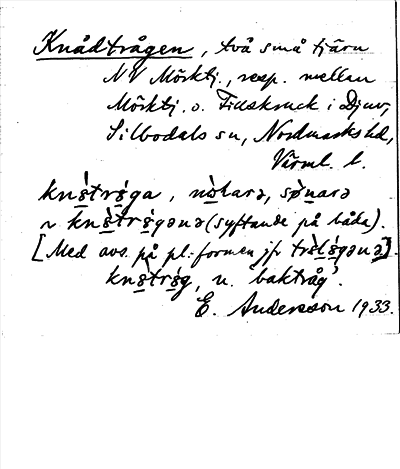 Knådtrågen, två små tjärn
NV Mörktj., resp. mellan
Mörktj. o. Fisskruck i Djuv,
Silbodals sn, Nordmarks hd,
Värml. l.
kn8̀str8́ga, nòlarə, sø̀narə
~ kn8̀tr8́gənə (syftande på båda).
[Med avs. på pl.-formen jfr trè̀l8́gənə].
kn8̀tr8́g, n. 'baktråg'.
E. Andersson 1933.